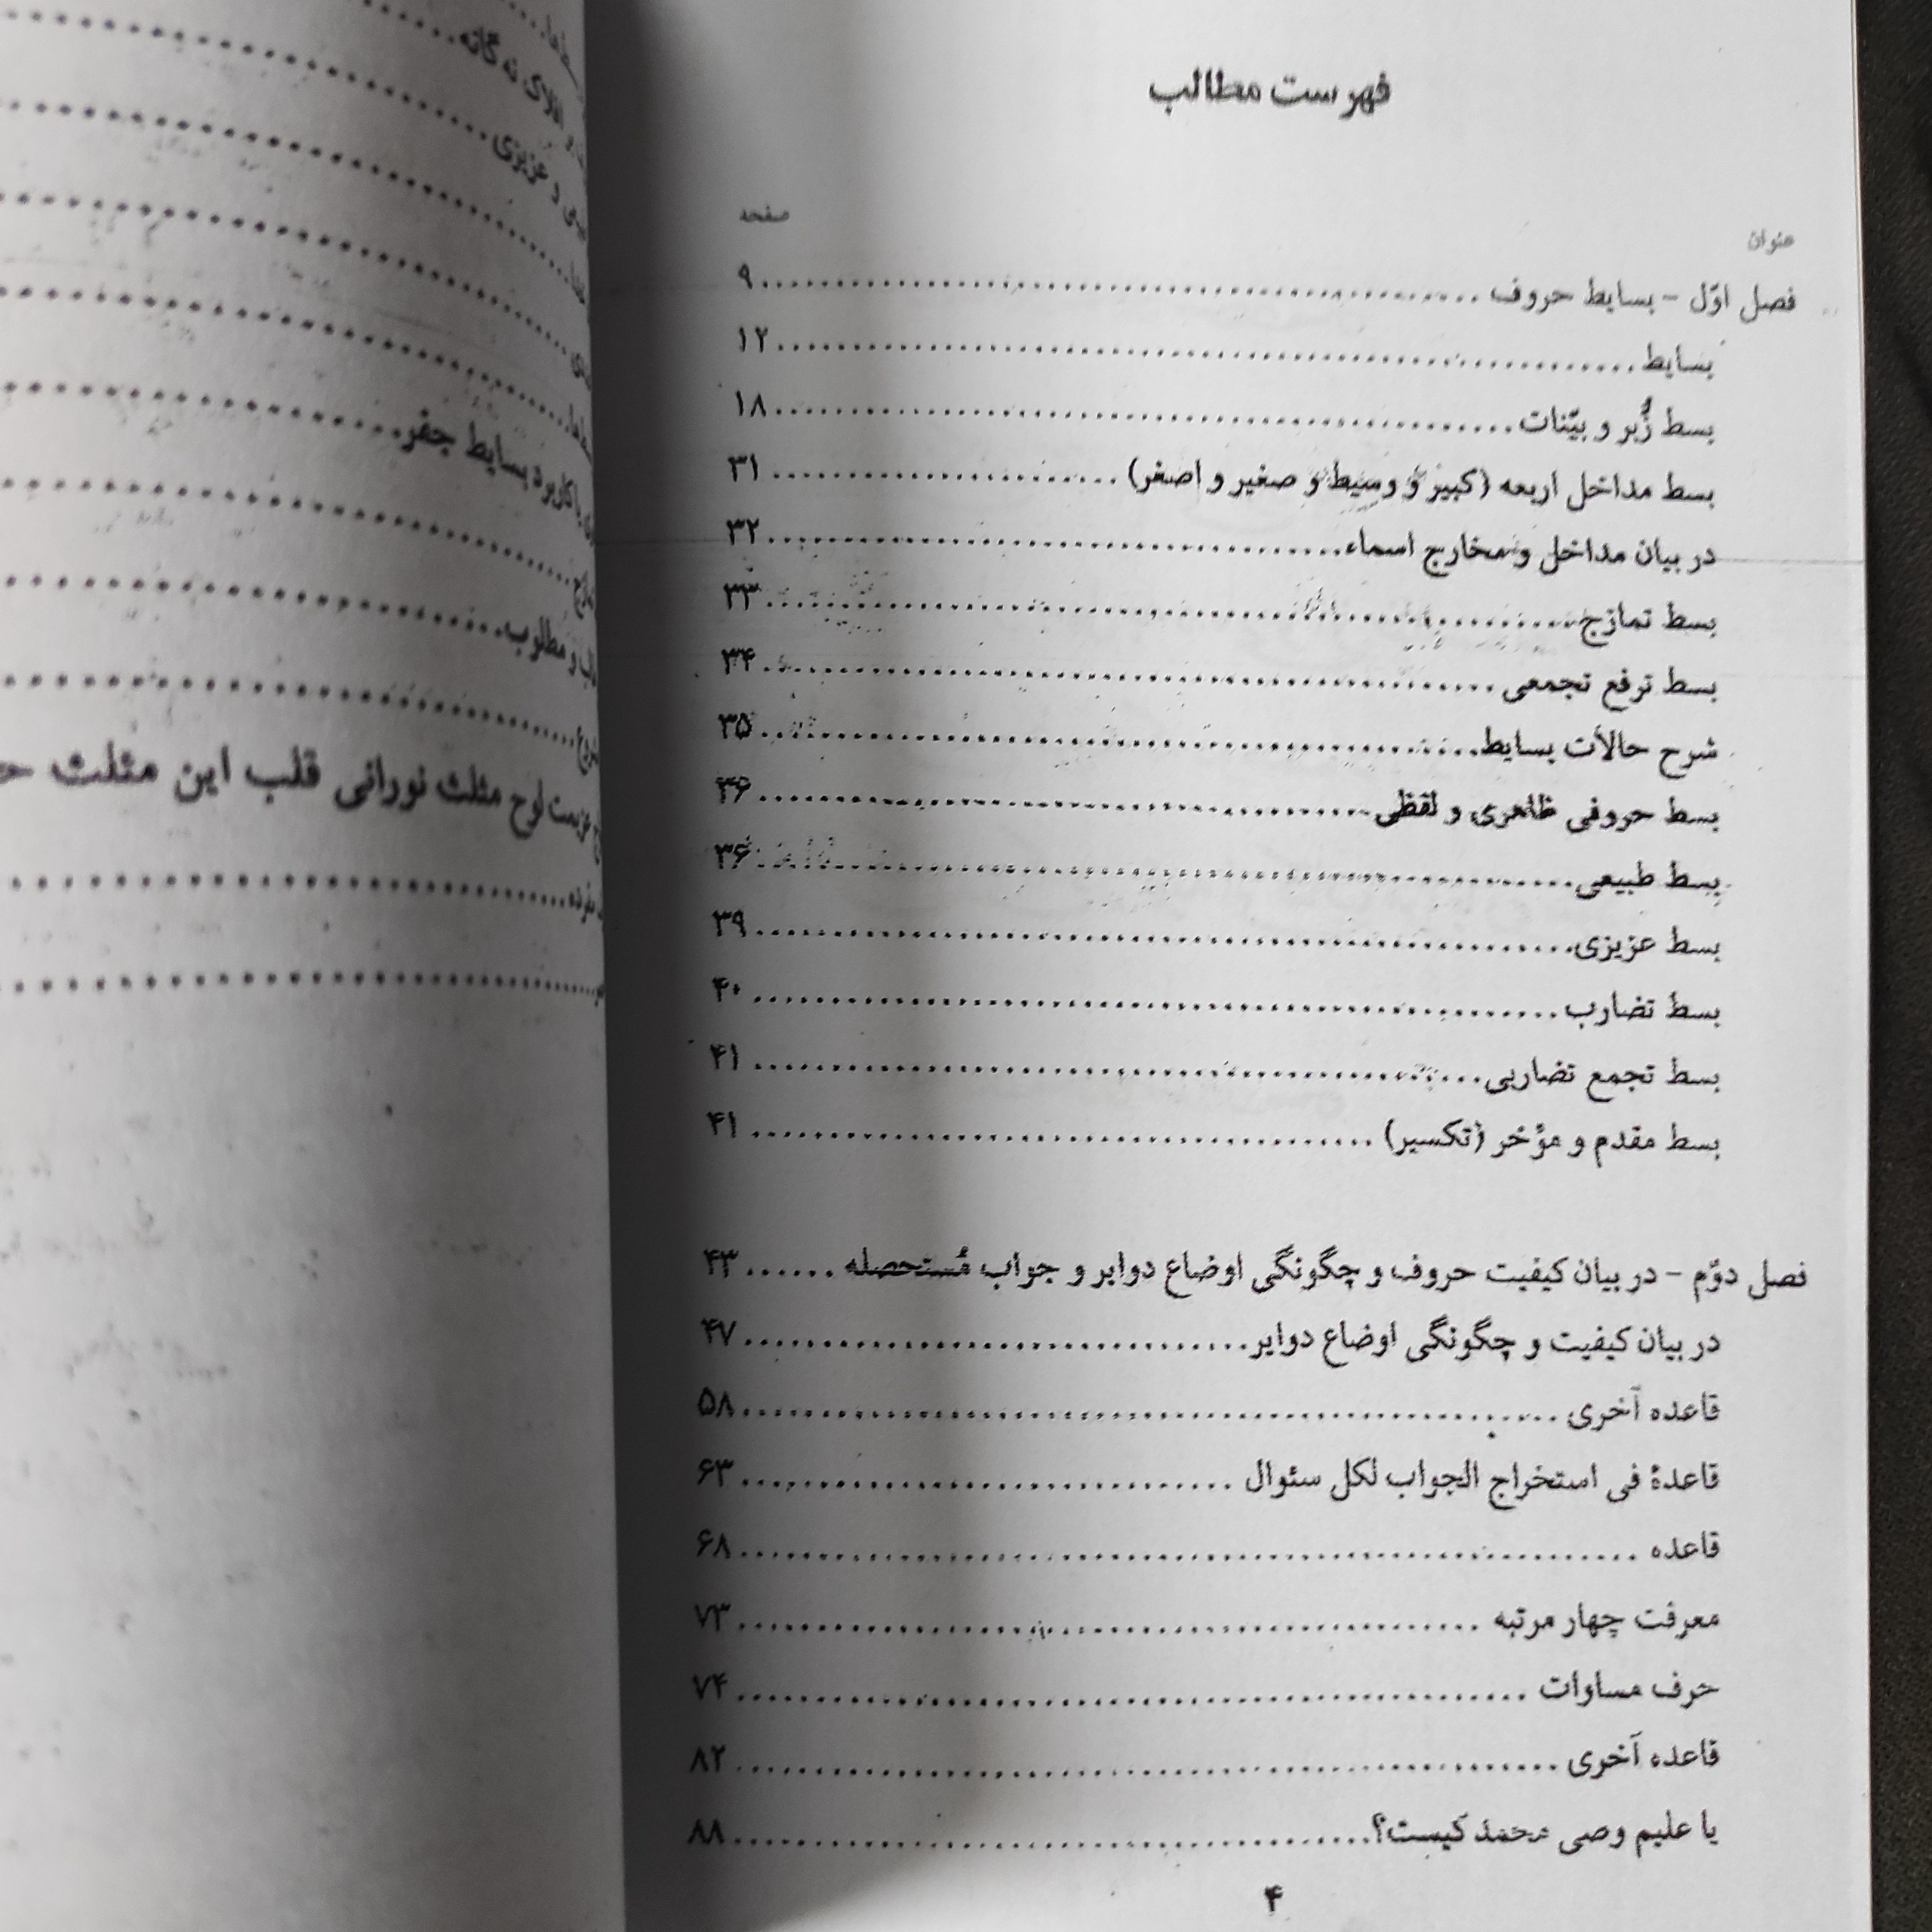 فهرست مطالب
عنوان صفحه
فصل اوّل - بسایط حروف ۹
بسایط ۱۲
بسط زُبر و بیّنات ۱۸
بسط مداخل اربعه (کبیر و وسیط و صغیر و اصغر) ۳۱
در بیان مداخل و مخارج اسماء ۳۲
بسط تمازج ۳۳
بسط ترفع تجمعی ۳۴
شرح حالات بسایط ۳۵
بسط حروفی ظاهری و لفظی ۳۶
بسط طبیعی ۳۶
بسط عزیزی ۳۹
بسط تضارب ۴۰
بسط تجمع تضاربی ۴۱
بسط مقدم و مؤخر (تکسیر) ۴۱
فصل دوّم - در بیان کیفیت حروف و چگونگی اوضاع دوایر و جواب مُستحصله ۴۳
در بیان کیفیت و چگونگی اوضاع دوایر ۴۷
قاعده آخری ۵۸
قاعدة فی استخراج الجواب لکل سئوال ۶۳
قاعده ۶۸
معرفت چهار مرتبه ۷۳
حرف مساوات ۷۴
قاعده آخری ۸۲
یا علیم وصی محمد کیست؟ ۸۸
۴
افلاک نه گانه
و عزیزی
با کاربرد بسایط جفر
و مطلوب
عزیمت لوح مثلث نورانی قلب این مثلث